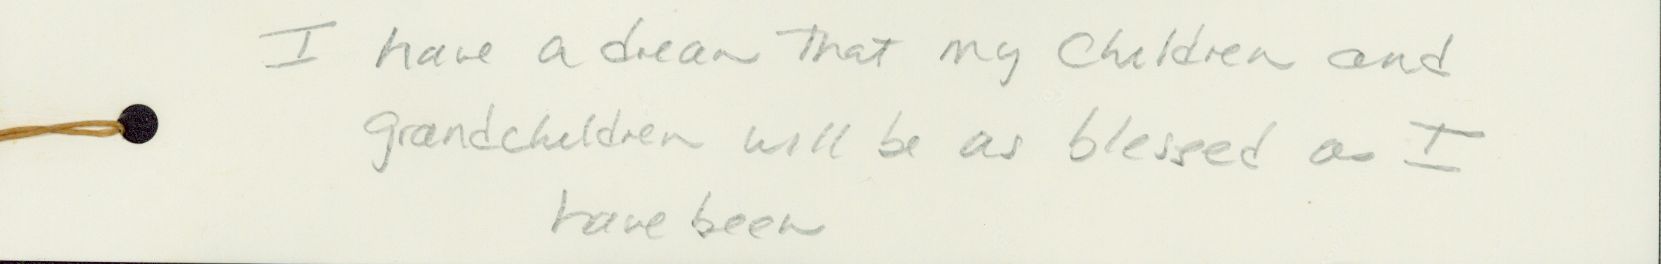 I have a dream that my children and
grandchildren will be as blessed as I
have been